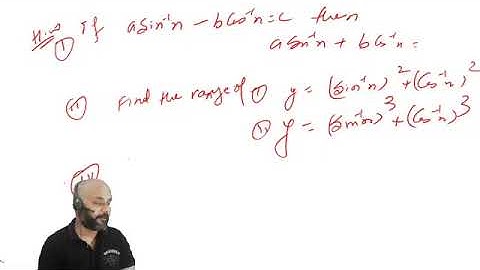 H.W
(I) If a sin⁻¹x − b cos⁻¹x = c then
a sin⁻¹x + b cos⁻¹x =
(II) Find the range of (i) y = (sin⁻¹x)² + (cos⁻¹x)²
(ii) y = (sin⁻¹x)³ + (cos⁻¹x)³